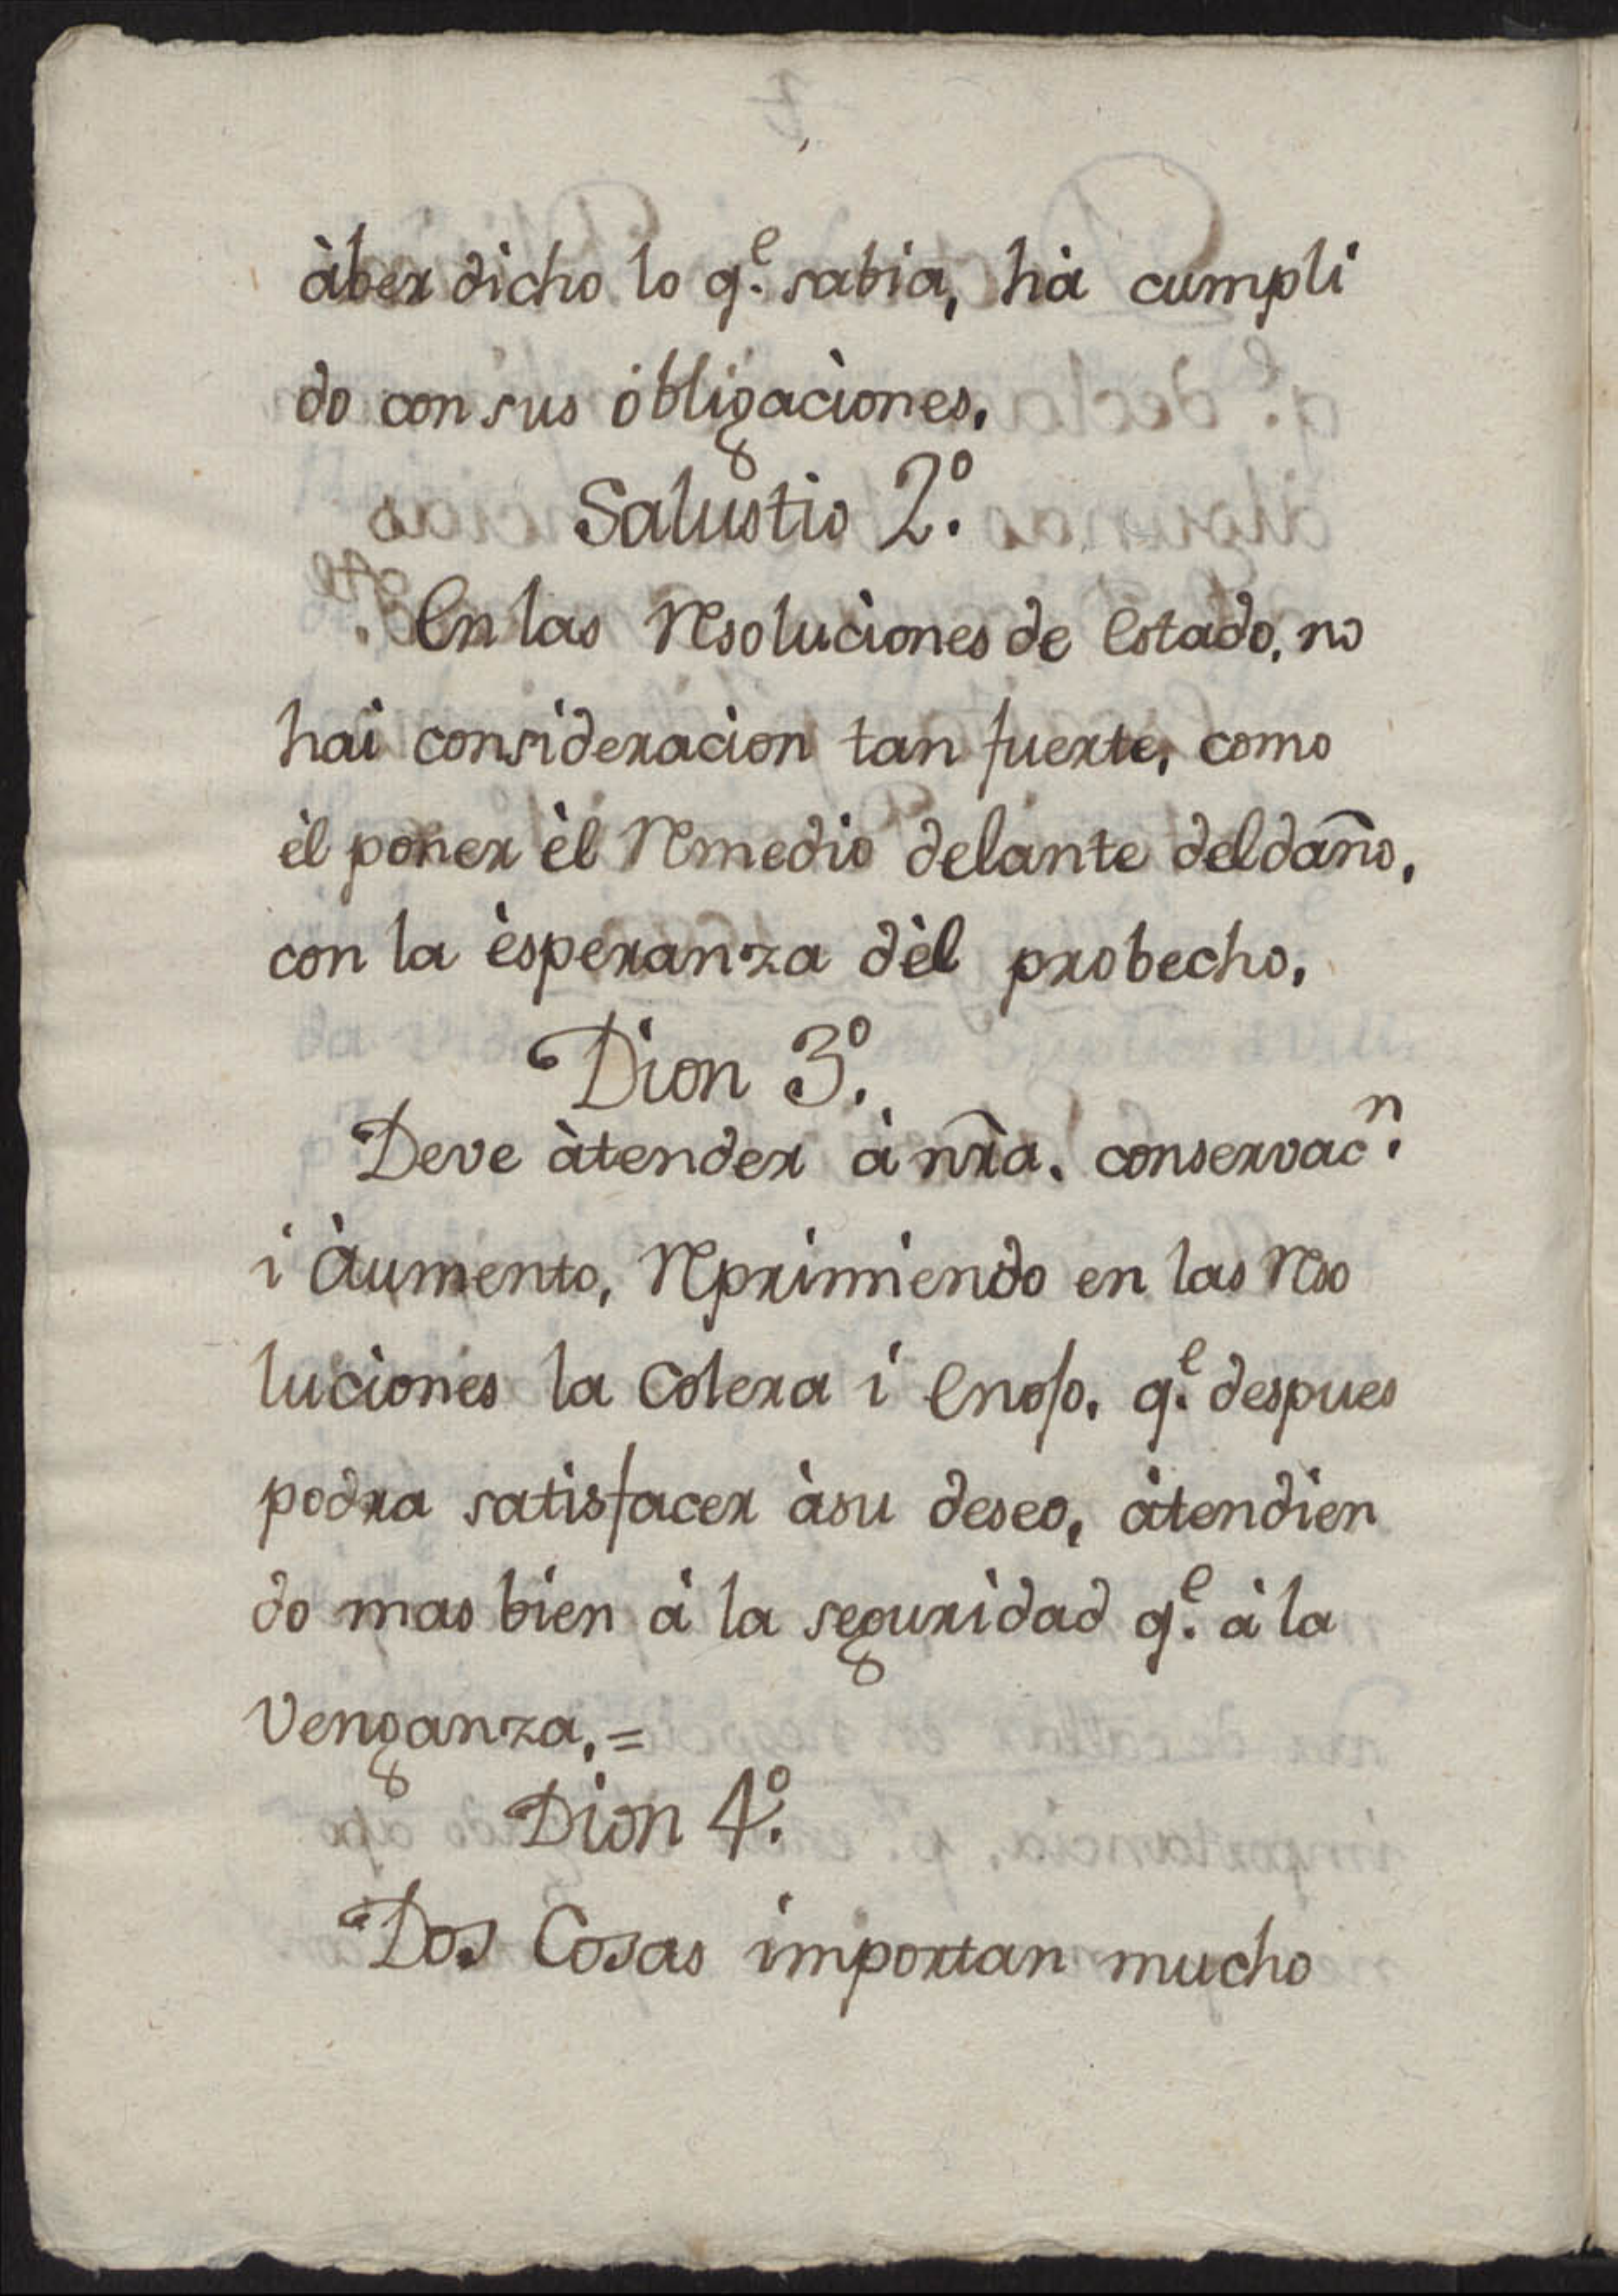 àber dicho lo q.e sabia, hà cumpli
do con sus obligaciones.
Salustio 2.º
En las Resoluciones de Estado, no
hai consideracion tan fuerte, como
èl poner èl Remedio delante del daño,
con la èsperanza dèl probecho,
Dion 3.º
Deve àtender à nr̃a. conservac.n
i Àumento, Reprimiendo en las Reso
luciones la Colera i Enojo, q.e despues
podra satisfacer àsu deseo, àtendien
do mas bien à la seguridad q.e à la
Venganza,=
Dion 4.º
Dos Cosas importan mucho